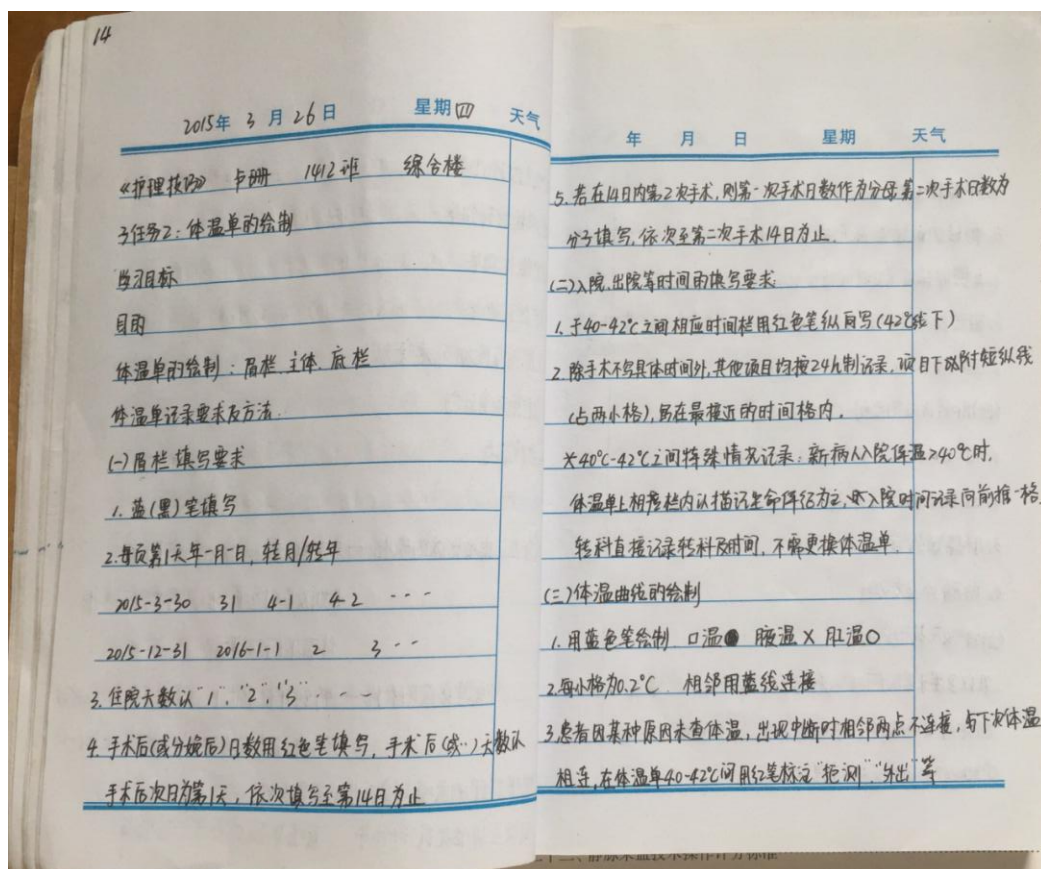 14
2015年 3 月 26 日 星期四 天气
《护理技巧》 卢珊 1412班 综合楼
子任务2：体温单的绘制
学习目标
目的
体温单的绘制：眉栏、主体、底栏
体温单记录要求及方法.
(一)眉栏填写要求
1. 蓝(黑)笔填写
2. 每页第1天年-月-日, 转月/转年
2015-3-30 31 4-1 4-2 ---
2015-12-31 2016-1-1 2 3 --
3. 住院天数认"1"、"2"、"3" ----
4. 手术后(或分娩后)日数用红色笔填写, 手术后(或…)天数认
手术后次日为第1天, 依次填写至第14日为止
年 月 日 星期 天气
5. 若在14日内第2次手术, 则第一次手术日数作为分母第二次手术日数为
分子填写, 依次至第二次手术14日为止.
(二)入院.出院等时间的填写要求
1. 于40-42℃之间相应时间栏用红色笔纵向写(42℃线下)
2. 除手术不写具体时间外, 其他项目均按24h制记录, 项目下 附短纵线
(占两小格), 写在最接近的时间格内.
*40℃-42℃之间特殊情况记录：新病人入院体温>40℃时,
体温单上相应栏内认描记生命体征为主, 入院时间记录向前推一格
转科直接记录转科及时间, 不需更换体温单.
(三)体温曲线的绘制
1. 用蓝色笔绘制 口温● 腋温× 肛温○
2. 每小格为0.2℃, 相邻用蓝线连接
3. 患者因某种原因未查体温, 出现中断时相邻两点不连接, 与下次体温
相连, 在体温单40-42℃间用红笔标注"拒测""外出"等